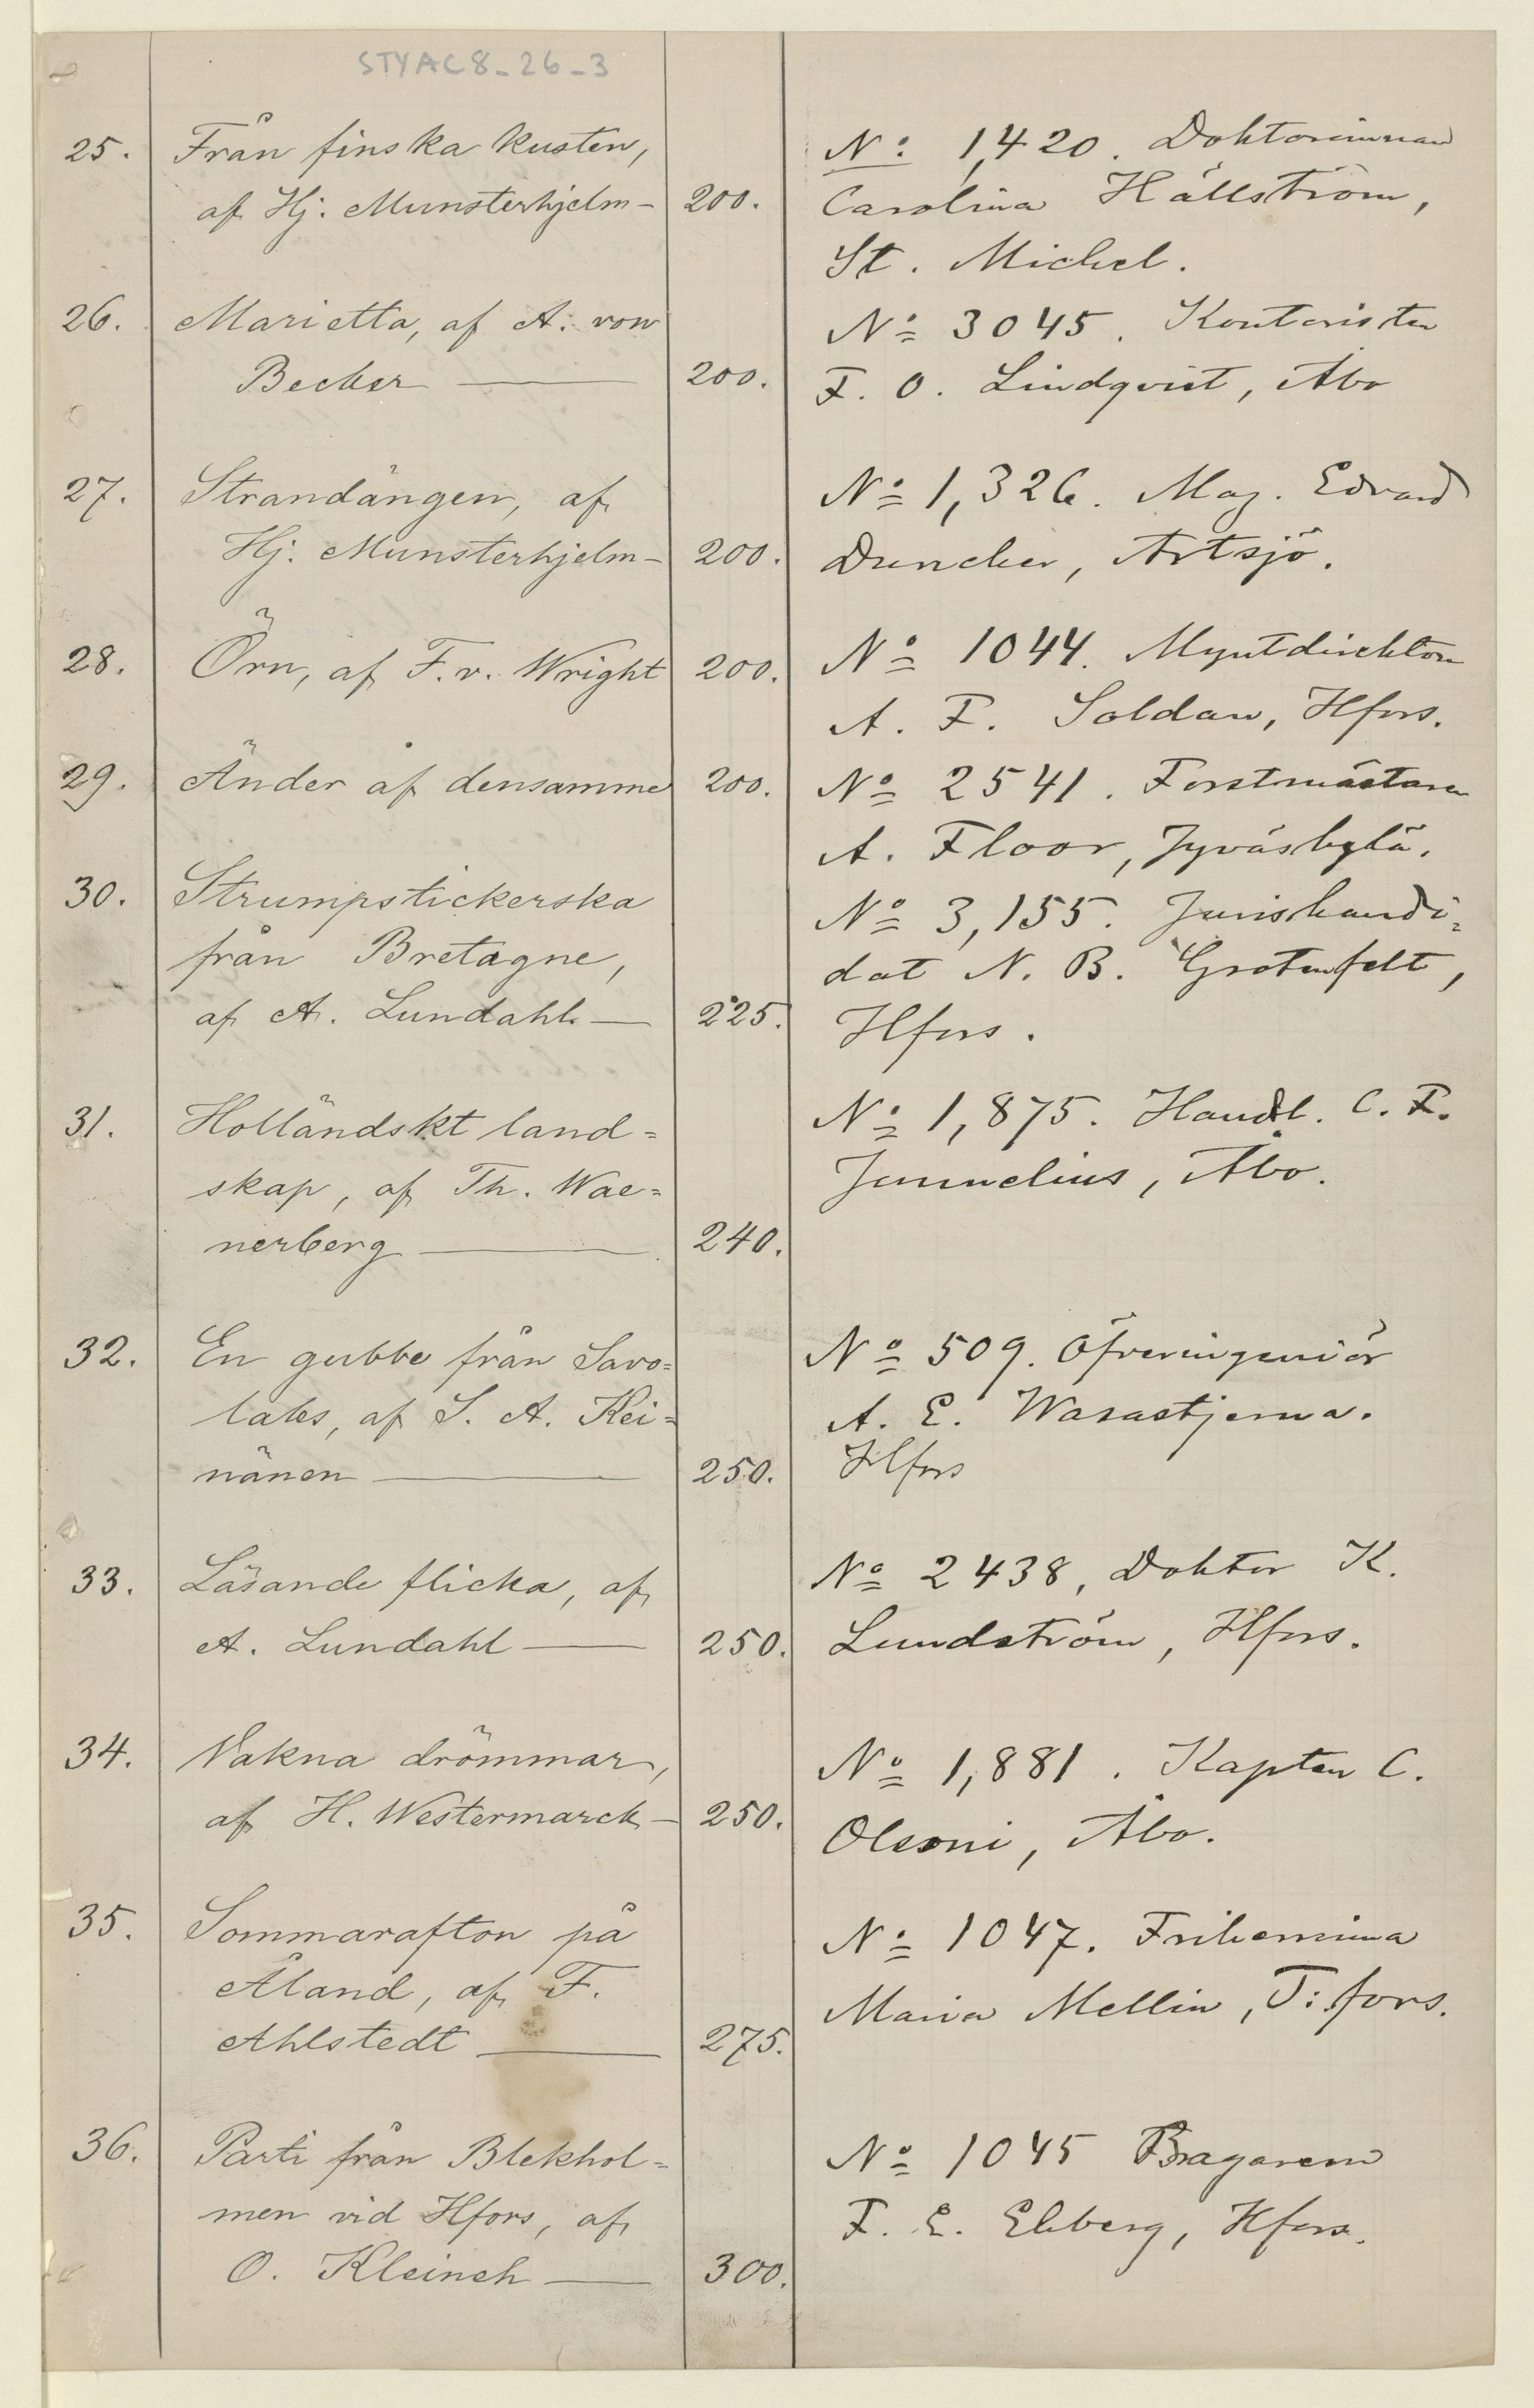 STYAC8_26_3
25. Från finska kusten, Nº 1,420. Doktorinnan
af Hj. Munsterhjelm — 200. Carolina Hällström,
St. Michel.
26. Marietta, af A. von Nº 3045. Kontoristen
Becker — 200. F. O. Lindqvist, Åbo
27. Strandängen, af Nº 1,326. Mag. Edvard
Hj. Munsterhjelm — 200. Duncker, Artsjö.
28. Örn, af F. v. Wright 200. Nº 1044. Myntdirektorn
A. F. Soldan, Hfors.
29. Änder af densamme 200. Nº 2541. Forstmästaren
A. Floor, Jyväskylä.
30. Strumpstickerska Nº 3,155. Juriskandi=
från Bretagne, dat N. B. Grotenfelt,
af A. Lundahl — 225. Hfors.
31. Holländskt land= Nº 1,875. Handl. C. F.
skap, af Th. Wae= Junnelius, Åbo.
nerberg — 240.
32. En gubbe från Savo= Nº 509. Öfveringeniör
laks, af S. A. Kei= A. E. Wasastjerna.
nänen — 250. Hfors
33. Läsande flicka, af Nº 2438, Doktor K.
A. Lundahl — 250. Lundström, Hfors.
34. Vakna drömmar, Nº 1,881. Kapten C.
af H. Westermarck — 250. Olsoni, Åbo.
35. Sommarafton på Nº 1047. Friherrinna
Åland, af F. Maria Mellin, T:fors.
Ahlstedt — 275.
36. Parti från Blekhol= Nº 1045 Bagaren
men vid Hfors, af F. E. Ekberg, Hfors.
O. Kleineh — 300.